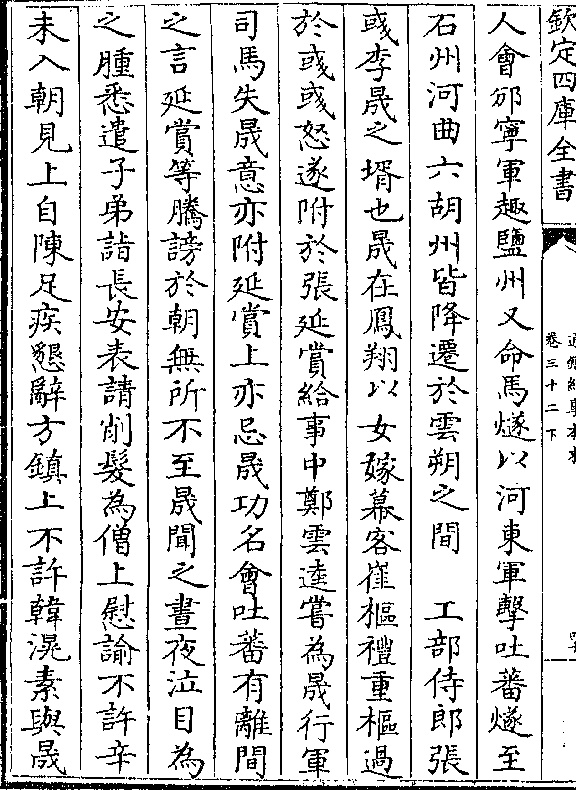 欽定四庫全書
通鑑紀事本末
卷三十二下
人會邠寧軍趣鹽州又命馬燧以河東軍擊吐蕃燧至
石州河曲六胡州皆降遷於雲朔之間　工部侍郎張
彧李晟之壻也晟在鳳翔以女嫁幕客崔樞禮重樞過
於彧彧怒遂附於張延賞給事中鄭雲逵嘗為晟行軍
司馬失晟意亦附延賞上亦忌晟功名會吐蕃有離間
之言延賞等騰謗於朝無所不至晟聞之晝夜泣目為
之腫悉遣子弟詣長安表請削髮為僧上慰諭不許辛
未入朝見上自陳足疾懇辭方鎮上不許韓滉素與晟